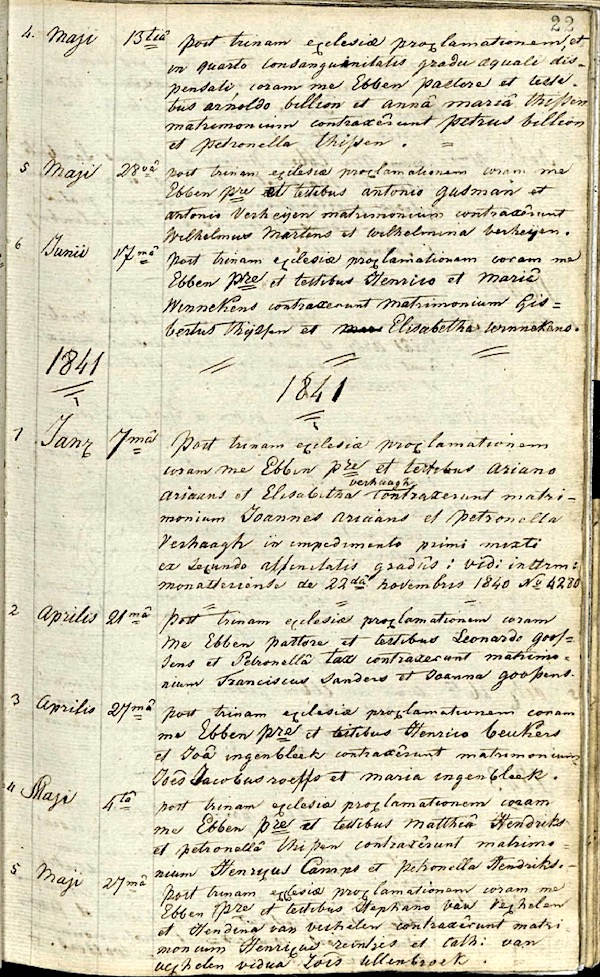 22
4. Maji 13tiâ post trinam eçlesiæ proçlamationem, et
in quarto consanguinitatis gradu æquali dis=
pensati, coram me Ebben pastore et testi=
bus arnoldo billion et annâ mariâ thissen
matrimonium contraxêrunt petrus billion
et petronella thissen. =
5 Maji 28vâ post trinam eçlesiæ proçlamationem coram me
Ebben pre et testibus antonio gusman et
antonio Verheijen matrimonium contraxêrunt
Wilhelmus Martens et wilhelmina verheijen.
6 Junii 17mâ post trinam eçlesiæ proçlamationem coram me
Ebben pre et testibus Henrico et Mariâ
Winnekens contraxerunt matrimonium Gis=
bertus thijssen et Elisabetha winnekens.
1841
1841
1 Janr 7mâ post trinam eçlesiæ proçlamationem
coram me Ebben pre et testibus ariano
ariaans et Elisabetha verhaagh contraxerunt matri=
monium Joannes ariaans et petronella
Verhaagh in impedimento primi mixti
ex secundo affinitatis gradûs: vidi:
de 22dâ novembris 1840 No 4280
2 Aprilis 21mâ post trinam eçlesiæ proçlamationem coram
me Ebben pastore et testibus Leonardo goos=
sens et Petronellâ tax contraxerunt matrimo=
nium Franciscus Sanders et Joanna goossens.
3 Aprilis 27mâ post trinam eçlesiæ proçlamationem coram
me Ebben pre et testibus Henrico beukers
et Joâ ingenbleek contraxêrunt matrimonium
Joês Jacobus roeffs et maria ingenbleek.
4 Maji 4tâ post trinam eçlesiæ proçlamationem coram
me Ebben pre et testibus matthiâ Hendriks
et petronellâ thissen contraxêrunt matrimo=
nium Henriçus Camps et petronella Hendriks.
5 Maji 27mâ post trinam eçlesiæ proçlamationem coram me
Ebben pre et testibus Stephano van veghelen
et Hendrina van veghelen contraxêrunt matri
monium Henriçus reintres et Cath: van
veghelen vidua Jois ullenbroek.